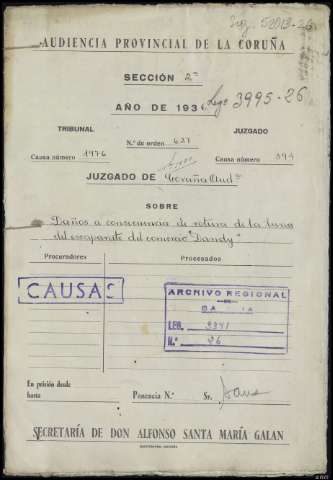 Leg. 52013-26
AUDIENCIA PROVINCIAL DE LA CORUÑA
SECCIÓN 2ª
AÑO DE 193
Lego 3995-26
TRIBUNAL
JUZGADO
N.º de orden 637
Causa número 1976
Causa número 394
JUZGADO DE Coruña Aud
SOBRE
Daños a consecuencia de rotura de la luna
del escaparate del comercio "Dandy"
Procuradores
Procesados
CAUSAS
ARCHIVO REGIONAL
DE
GALICIA
LEG. 2341
N.º 26
En prisión desde
hasta
Ponencia N.º
Sr.
SECRETARÍA DE DON ALFONSO SANTA MARÍA GALAN